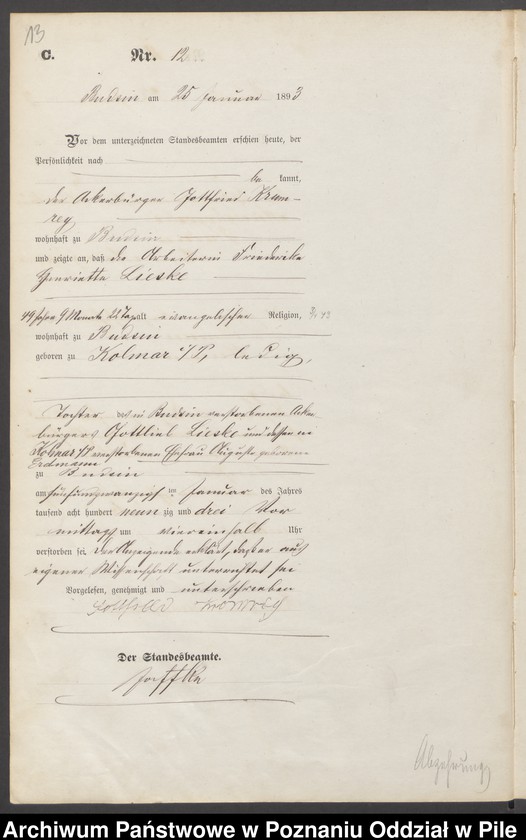 13
C. Nr. 12
Budsin am 25 Januar 1893
Vor dem unterzeichneten Standesbeamten erschien heute, der
Persönlichkeit nach
be kannt,
der Ackerbürger Gottfried Krom-
rey
wohnhaft zu Budsin
und zeigte an, daß die Arbeiterin Friederike
Henriette Lieske
49 Jahre 9 Monate Tag alt evangelischer Religion,
wohnhaft zu Budsin
geboren zu Kolmar i/P, ledig,
Tochter des in Budsin verstorbenen Acker
bürgers Gottlieb Lieske und dessen in
Kolmar i/P verstorbenen Ehefrau Auguste geborene
Erdmann
zu Budsin
am fünfundzwanzigsten Januar des Jahres
tausend acht hundert neun zig und drei Vor
mittags um viereinhalb Uhr
verstorben sei. Der Anzeigende erklärt, daß er aus
eigener Wissenschaft unterrichtet sei
Vorgelesen, genehmigt und unterschrieben
Gottfried Kromrey
Der Standesbeamte.
Abzehrung
Archiwum Państwowe w Poznaniu Oddział w Pile